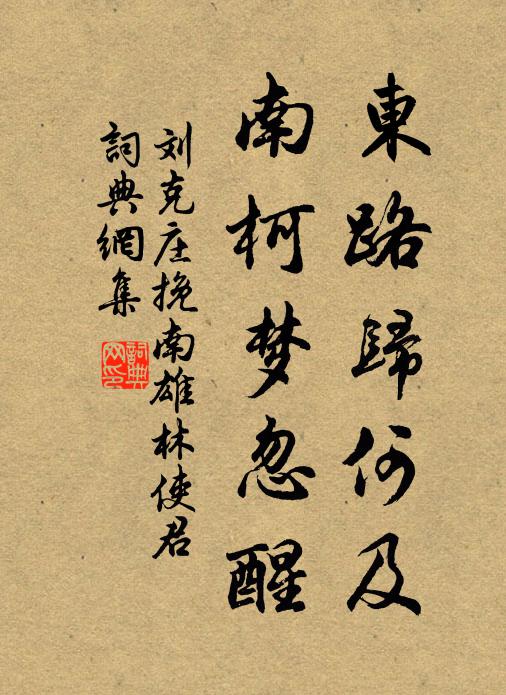 東路歸何及
南柯梦忽醒
刘克庄挽南雄林使君
詞典網集
詞典网印